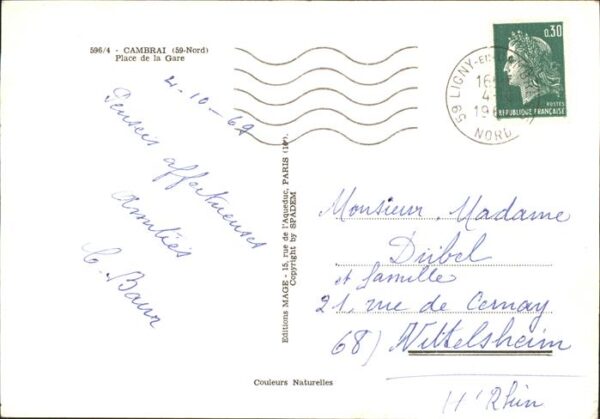 596/4 - CAMBRAI (59-Nord)
Place de la Gare
4-10-69
Pensées affectueuses
Amitiés
Editions MAGE - 15, rue de l'Aqueduc, PARIS (10e).
Copyright by SPADEM
0,30
POSTES
REPUBLIQUE FRANÇAISE
59 LIGNY-EN-
16
4-
196
NORD
Monsieur Madame
Dübel
et famille
21, rue de Cernay
68) Wittelsheim
Ht Rhin
Couleurs Naturelles